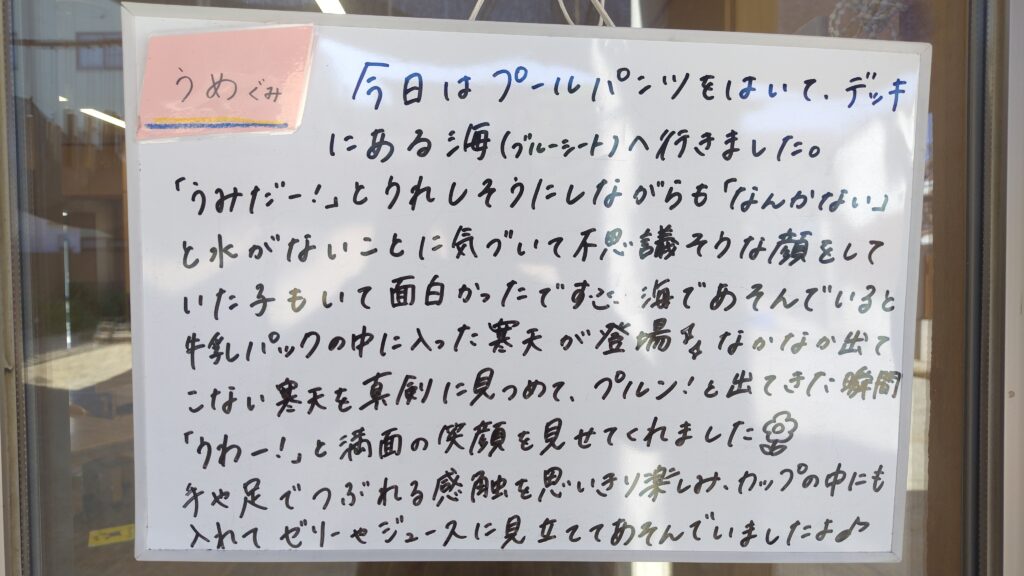 うめぐみ
今日はプールパンツをはいて、デッキ
にある海(ブルーシート)へ行きました。
「うみだー!」とうれしそうにしながらも「なんかない」
と水がないことに気づいて不思議そうな顔をして
いた子もいて面白かったです 海であそんでいると
牛乳パックの中に入った寒天が登場 なかなか出て
こない寒天を真剣に見つめて、プルン!と出てきた瞬間
「うわー!」と満面の笑顔を見せてくれました
手や足でつぶれる感触を思いきり楽しみ、カップの中にも
入れてゼリーやジュースに見立ててあそんでいましたよ♪